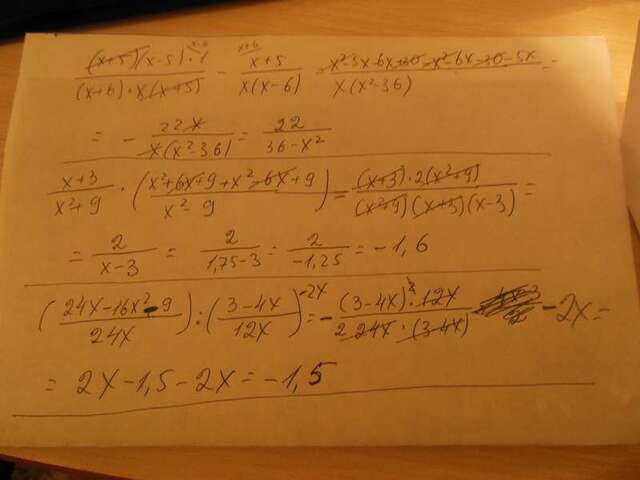 x-6 x+6
(x+5)(x-5)·1/(x+6)·x(x+5) - x+5/x(x-6) = x²-5x-6x+30-x²-6x-30-5x/x(x²-36) =
= - 22x/x(x²-36) = 22/36-x²
x+3/x²+9 · (x²+6x+9+x²-6x+9/x²-9) = (x+3)·2(x²+9)/(x²+9)(x+3)(x-3) =
= 2/x-3 = 2/1,75-3 = 2/-1,25 = -1,6
(24x-16x²-9/24x) : (3-4x/12x) -2x = - (3-4x)²·12x/2 24x·(3-4x) - 2x =
= 2x-1,5-2x = -1,5